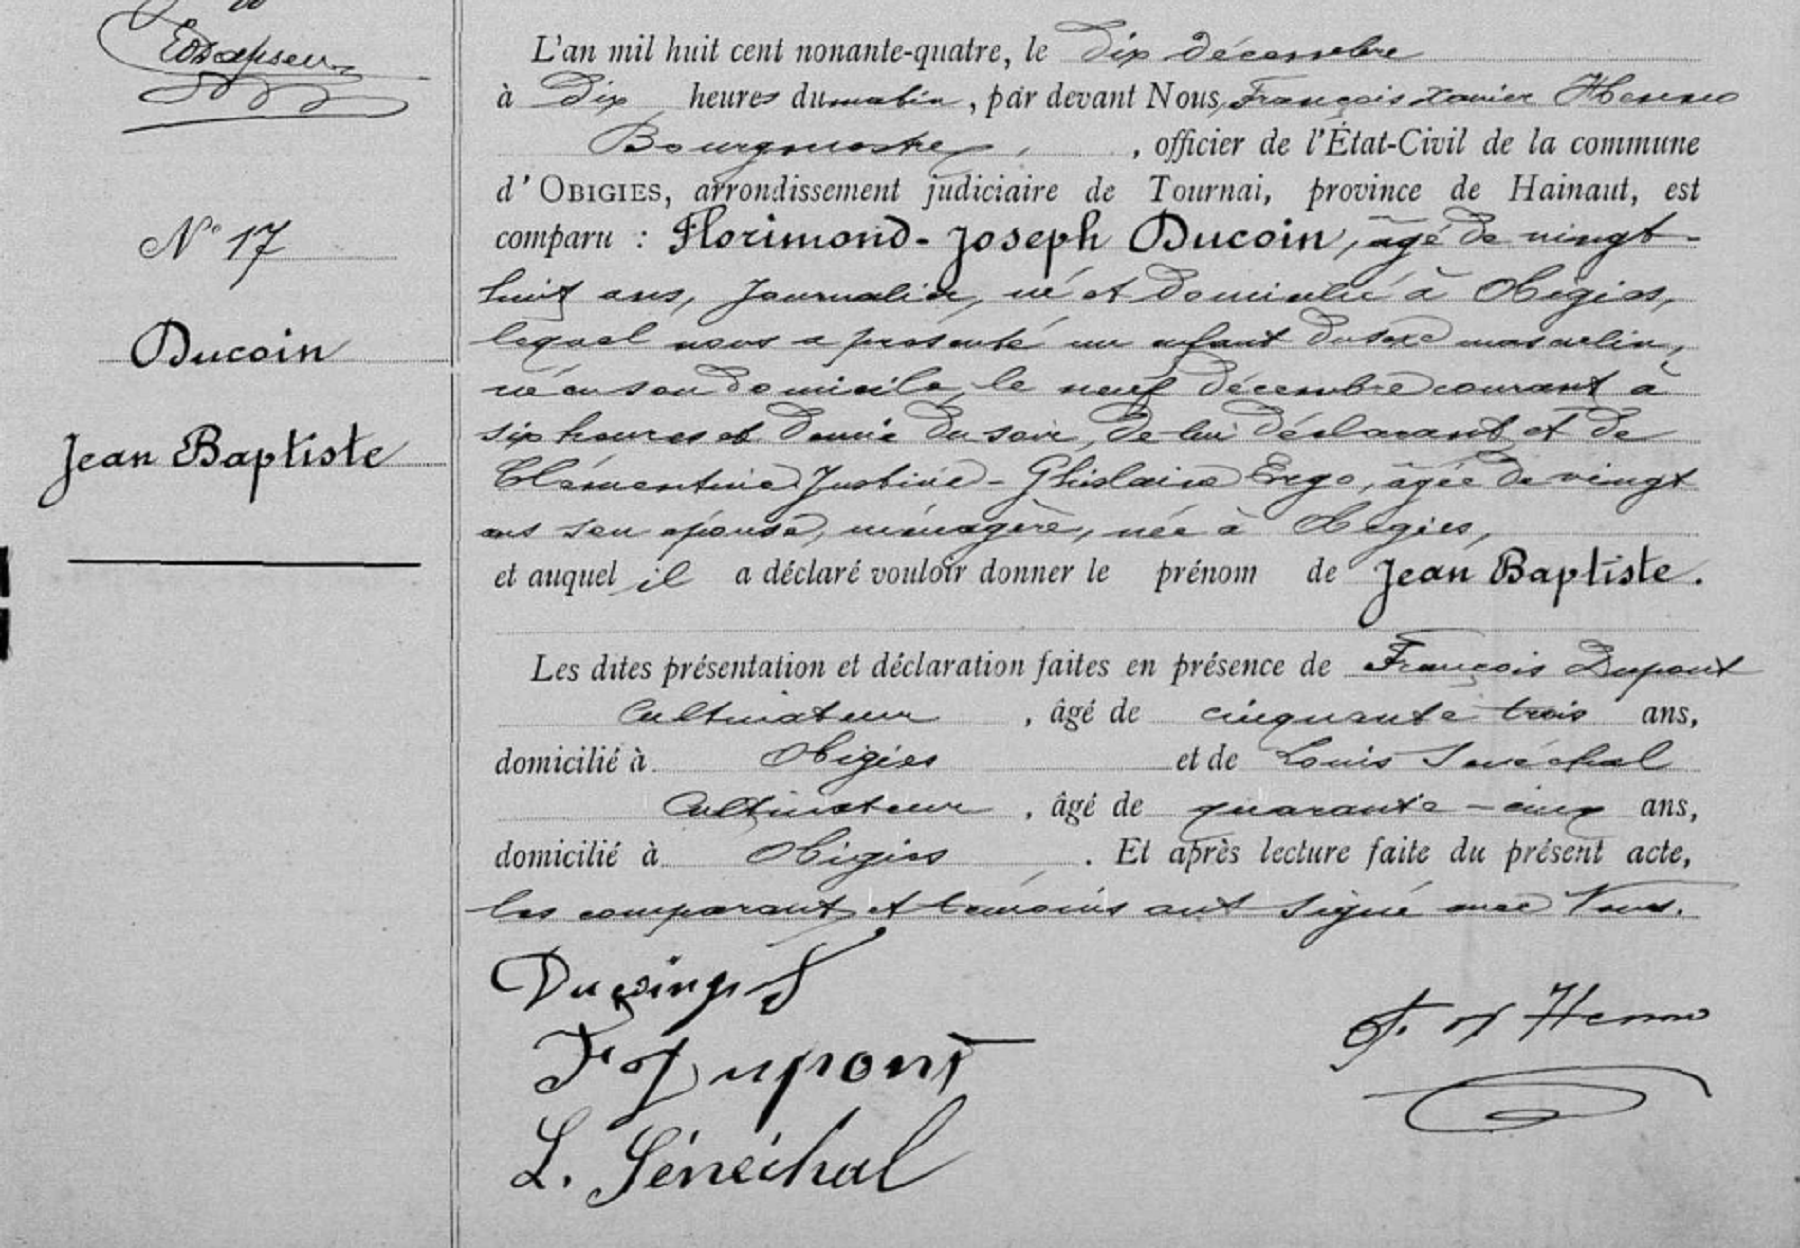 N° 17
Ducoin
Jean Baptiste
L'an mil huit cent nonante-quatre, le dix décembre
à dix heures du matin, par devant Nous, François Xavier Henno
Bourgmestre, officier de l'État-Civil de la commune
d'OBIGIES, arrondissement judiciaire de Tournai, province de Hainaut, est
comparu : Florimond-Joseph Ducoin, âgé de vingt-
huit ans, journalier, né et domicilié à Obigies,
lequel nous a présenté un enfant du sexe masculin,
né en son domicile, le neuf décembre courant à
six heures et demie du soir, de lui déclarant et de
Clémentine Justine-Ghislaine Ergo, âgée de vingt
ans son épouse, ménagère, née à Obigies,
et auquel il a déclaré vouloir donner le prénom de Jean Baptiste.
Les dites présentation et déclaration faites en présence de François Dupont
Cultivateur, âgé de cinquante trois ans,
domicilié à Obigies et de Louis Sénéchal
Cultivateur, âgé de quarante-cinq ans,
domicilié à Obigies. Et après lecture faite du présent acte,
les comparant et témoins ont signé avec Nous.
F. X Henno
F Dupont
L. Sénéchal